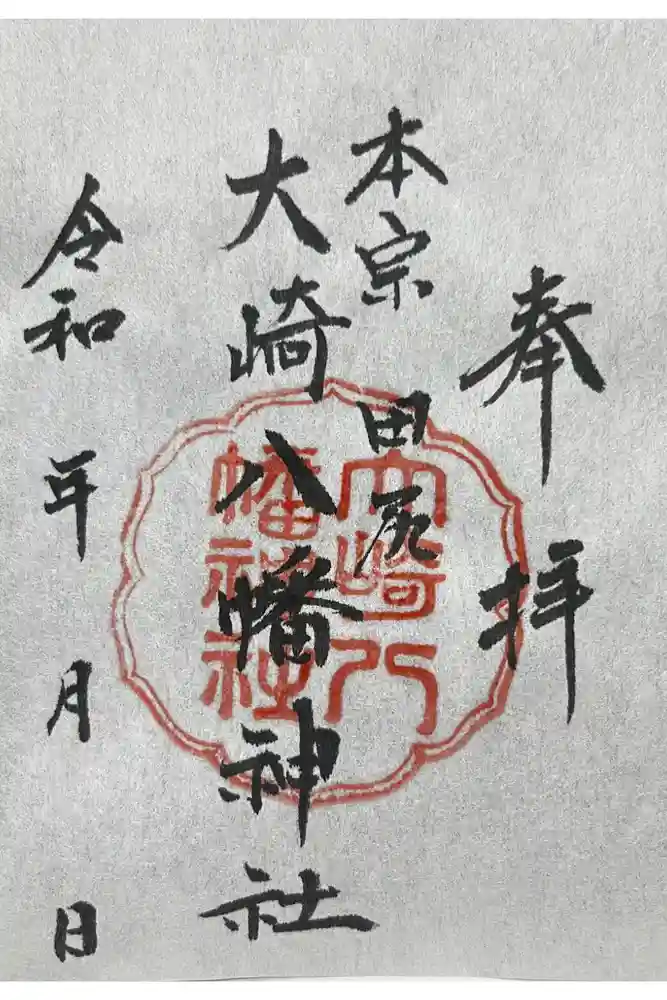 奉拝
本宗 田尻
大崎八幡神社
大崎八
幡神社
令和 年 月 日